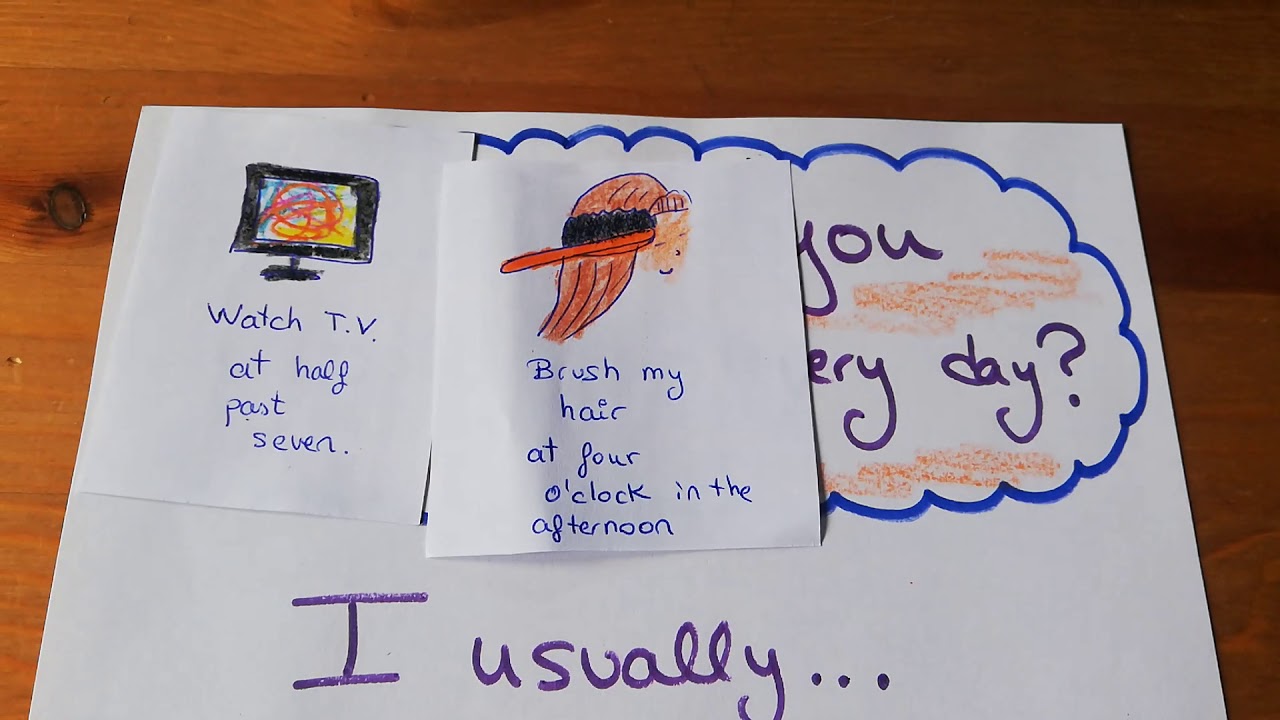 Watch T.V.
at half
past
seven.
Brush my
hair
at four
o'clock in the
afternoon
you
day?
I usually...